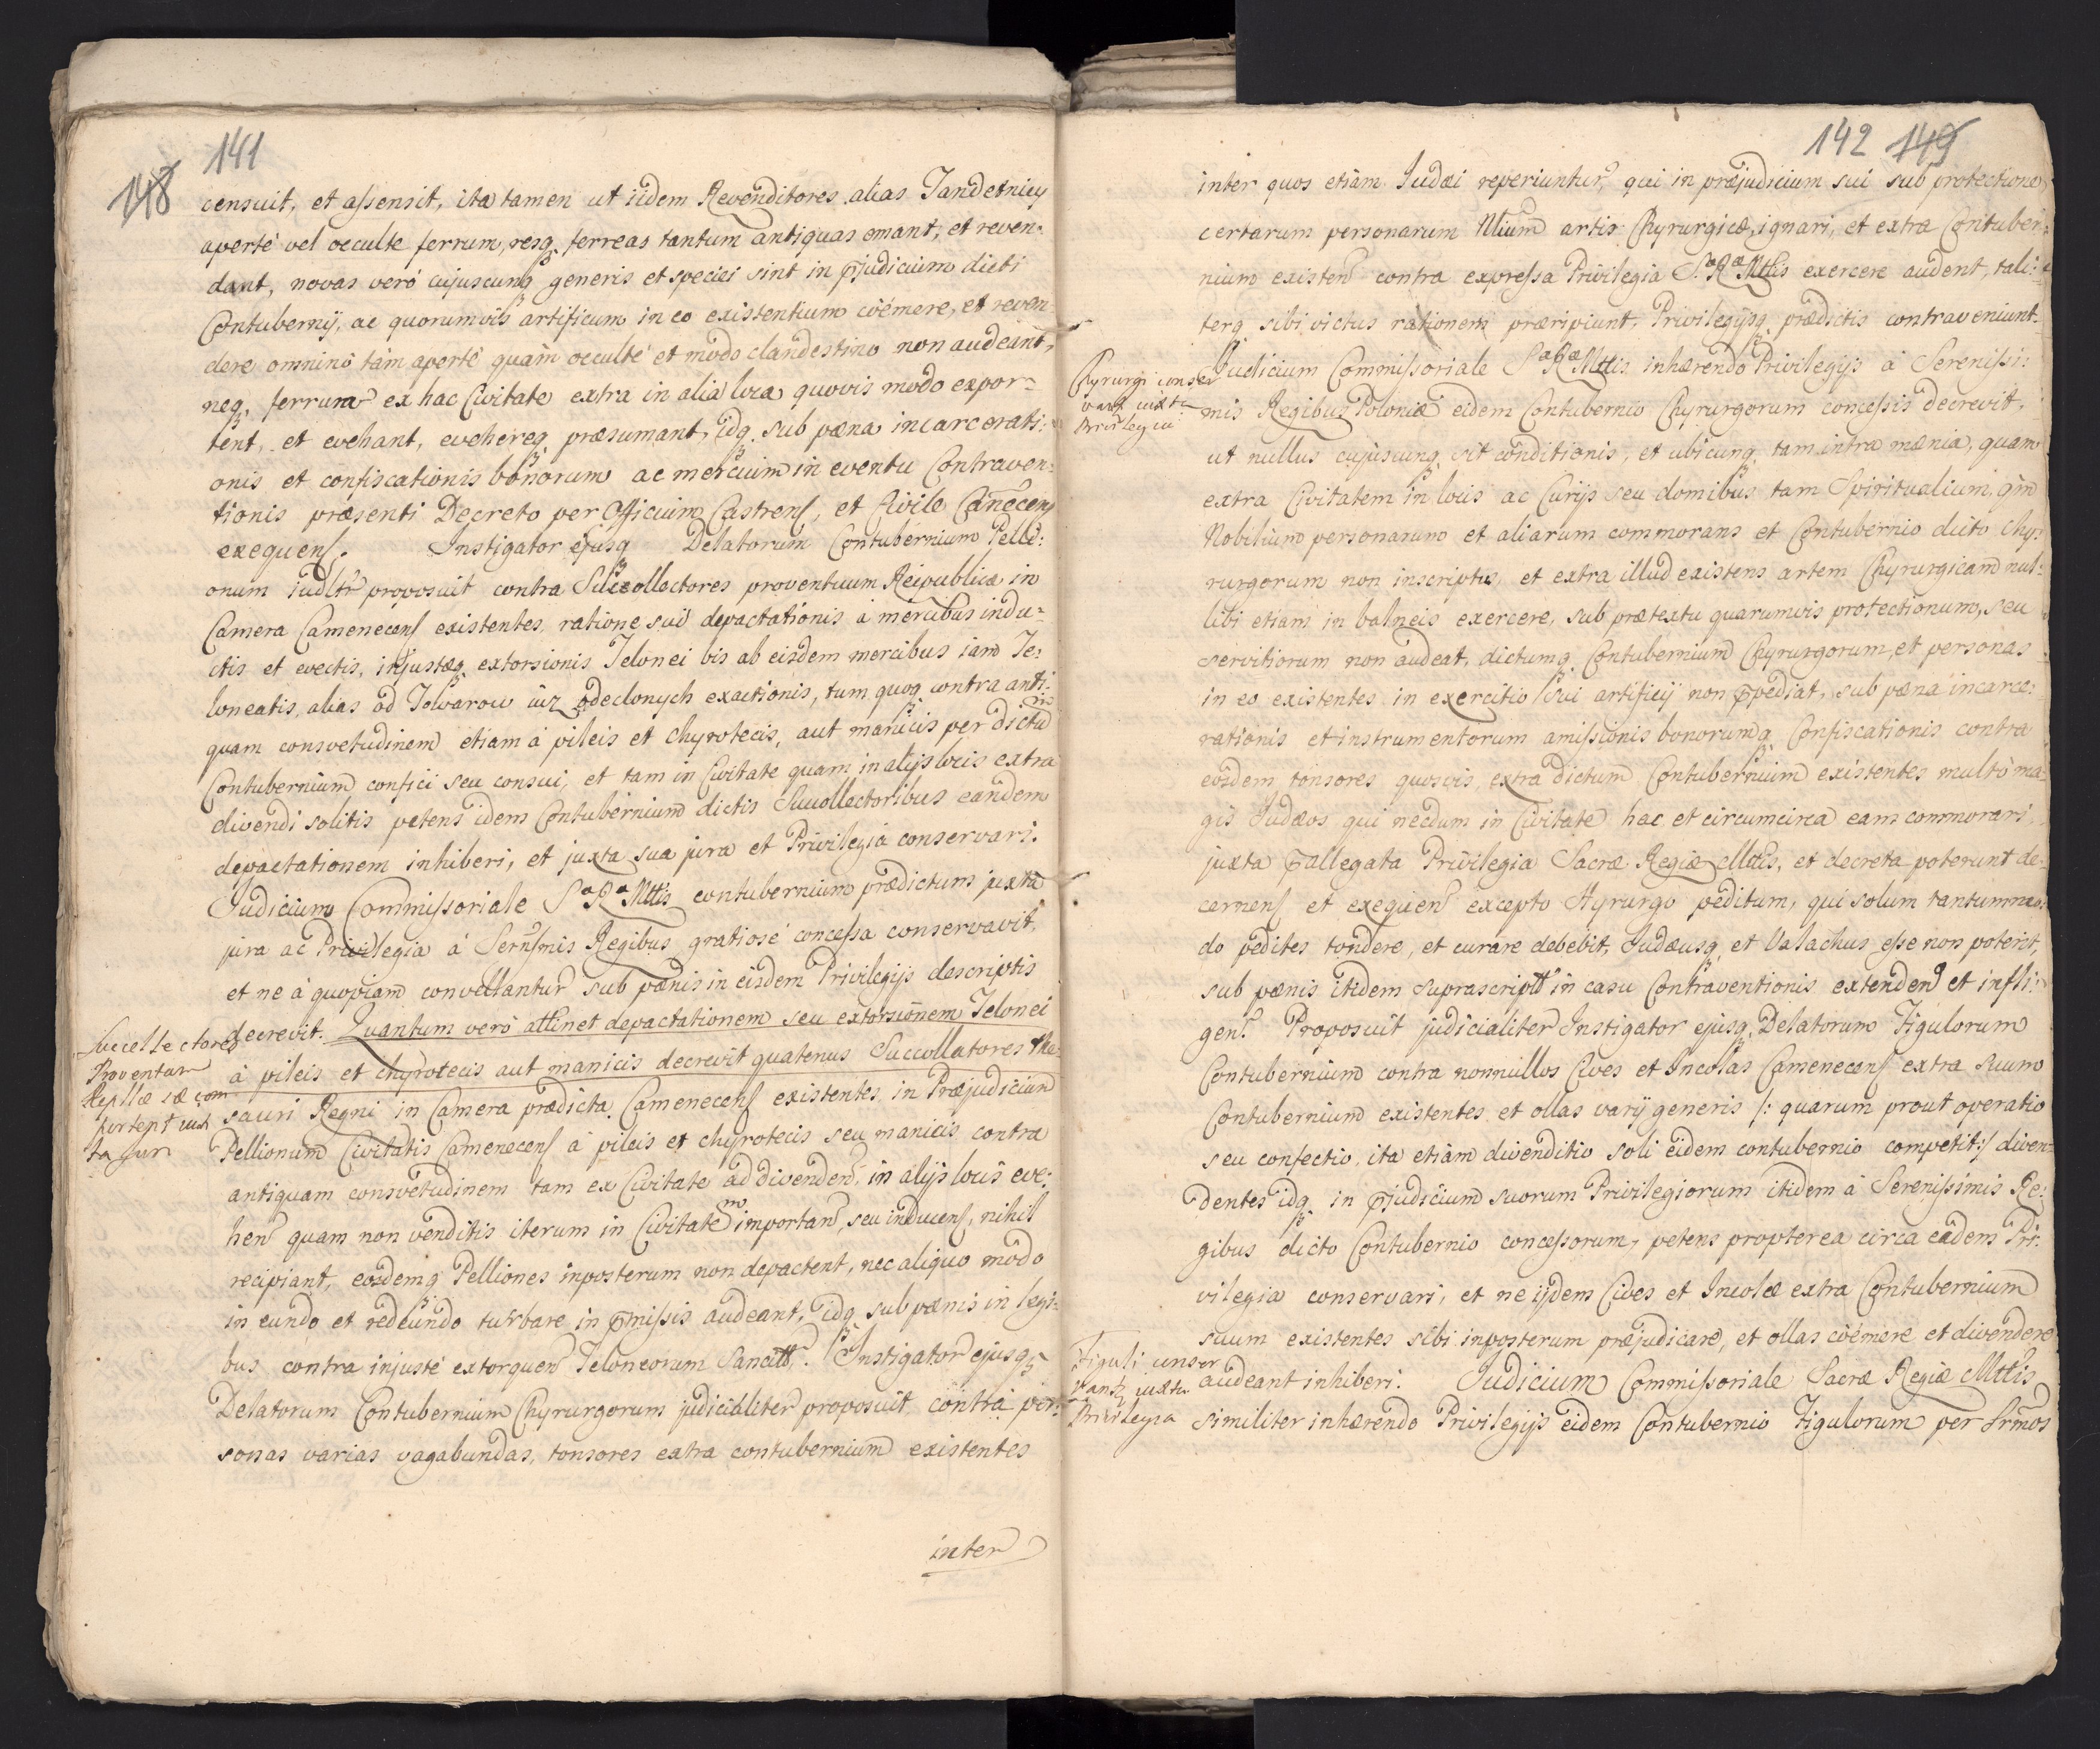 141
148
censuit, et assensit, ita tamen ut iidem Revenditores alias Tandetnicy
aperté vel occulte ferrum, resq ferreas tantum antiquas emant, et reven-
dant, novas veró cujuscunq generis et speciei sint in pjudicium dicti
Contubernij, ac quorumvis artificum in eo existentium coémere, et reven-
dere omninó tám aperté quam occulté et modo clandestino non audeant,
neq ferrum ex hac Civitate extra in alia loca quovis modo expor-
tent, et evehant, evehereq præsumant, idq sub pæna incarcerati:
onis et confiscationis bonorum ac mercium in eventu Contraven-
tionis præsenti Decreto per Officium Castrens, et Civile Camecens
exequens. Instigator ejusq Delatorum Contubernium Pelli:
onum iudltr proposuit contra Succollectores proventuum Reipublicæ in
Camera Camenecens existentes, ratione sui depactationis á mercibus indu-
ctis et evectis, injustæq extorsionis Telonei bis ab eisdem mercibus iam Te:
loneatis, alias od Towarow iuz odeclonych exactionis, tum quoq contra anti-
quam consvetudinem etiam á pileis et chyrotecis, aut manicis per dictum
Contubernium confici seu consui, et tam in Civitate quam in alijs locis extra
divendi solitis petens idem Contubernium dictis Succollectoribus eandem
depactationem inhiberi, et juxta sua jura et Privilegia conservari.
Judicium Commissoriale Sæ Ræ Mttis contubernium prædictum juxta
jura ac Privilegia á Sernsmis Regibus gratiosé concessa conservavit,
et ne á quopiam convellantur sub pænis in eisdem Privilegijs descriptis
decrevit. Quantum veró attinet depactationem seu extorsionem Telonei
á pileis et chyrotecis aut manicis decrevit quatenus Succollatores The-
sauri Regni in Camera prædicta Camenecens existentes in Præjudicium
Pellionum Civitatis Camenecens á pileis et chyrotecis seu manicis contra
antiquam consvetudinem tam ex Civitate ad divenden in alijs locis eve:
hen quam non venditis iterum in Civitatem importan, seu inducens, nihil
recipiant, eosdemq Pelliones inposterum non depactent, nec aliquo modo
in eundo et redeundo turbare in pmissis audeant, idq sub pænis in legi-
bus contra injusté extorquen Teloneorum Sancitt. Instigator ejusq
Delatorum Contubernium Chyrurgorum judicialiter proposuit contra per-
sonas varias vagabundas, tonsores extra contubernium existentes
inter
Succellectores
Proventuum
Repllcæ se com
portent iux
ta jura
142 149
inter quos etiam Judæi reperiuntur, qui in præjudicium sui sub protectione
certarum personarum Nlium artis Chyrurgicæ ignari, et extra Contuber:
nium existen contra expressa Privilegia Sæ Ræ Mttis exercere audent, tali:
terq sibi victus rationem præripiunt, Privilegijsq prædictis contraveniunt.
Judicium Commissoriale Sæ Ræ Mttis inhærendo Privilegijs á Serenissi:
mis Regibus Poloniæ eidem Contubernio Chyrurgorum concessis decrevit,
ut nullus cujuscunq sit conditionis, et ubicunq tam intra mænia, quam
extra Civitatem in locis ac Curijs seu domibus tam Spiritualium, qm
Nobilium personarum et aliarum commorans et Contubernio dicto Chy:
rurgorum non inscriptus, et extra illud existens artem Chyrurgicam nul:
libi etiam in balneis exercere, sub prætextu quarumvis protectionum, seu
servitiorum non audeat, dictumq Contubernium Chyrurgorum, et personas
in eo existentes in exercitio sui artificij non ppediat, sub pæna incarce:
rationis et instrumentorum amissionis bonorumq Confiscationis contra
eosdem tonsores quosvis extra dictum Contubernium existentes multó ma-
gis Judæos qui necdum in Civitate hac et circumcirca eam commorari
juxta pallegata Privilegia Sacræ Regiæ Mttis, et decreta poterunt de-
cernens et exequen excepto Chyrurgo peditum, qui solum tantummo-
do pedites tondere, et curare debebit, Judæusq et Valachus esse non poterit,
sub pænis itidem suprascriptt in casu Contraventionis extenden et infli:
gen. Proposuit judicialiter Instigator ejusq Delatorum Figulorum
Contubernium contra nonnullos Cives et Incolas Camenecens extra suum
Contubernium existentes et ollas varij generis /: quarum prout operatio
seu confectio, ita etiam divenditio soli eidem contubernio competit :/ diven-
dentes idq in pjudicium suorum Privilegiorum itidem á Serenissimis Re:
gibus dicto Contubernio concessorum, petens propterea circa eadem Pri-
vilegia conservari, et ne ijdem Cives et Incolæ extra Contubernium
suum existentes sibi inposterum præjudicare, et ollas coémere et divendere
audeant inhiberi. Judicium Commissoriale Sacræ Regiæ Mttis
similiter inhærendo Privilegijs eidem Contubernio Figulorum per Srmos
Chyrurgi conser
vant iuxta
Privilegia
Figuli conser
vant iuxta
Privilegia